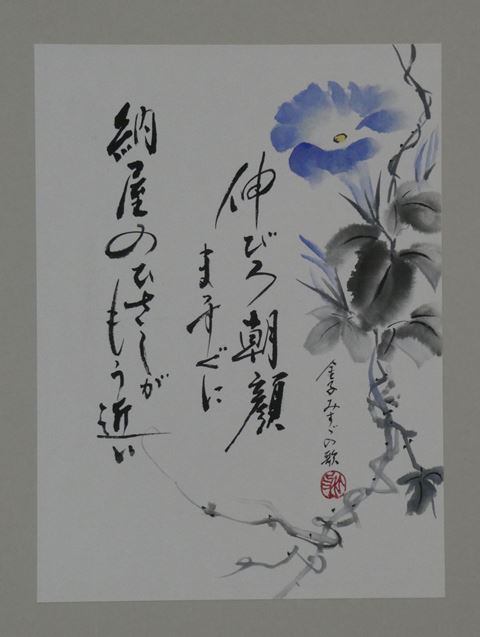 伸びろ朝顔
まっすぐに
納屋のひさしが
もう近い
金子みすゞの歌